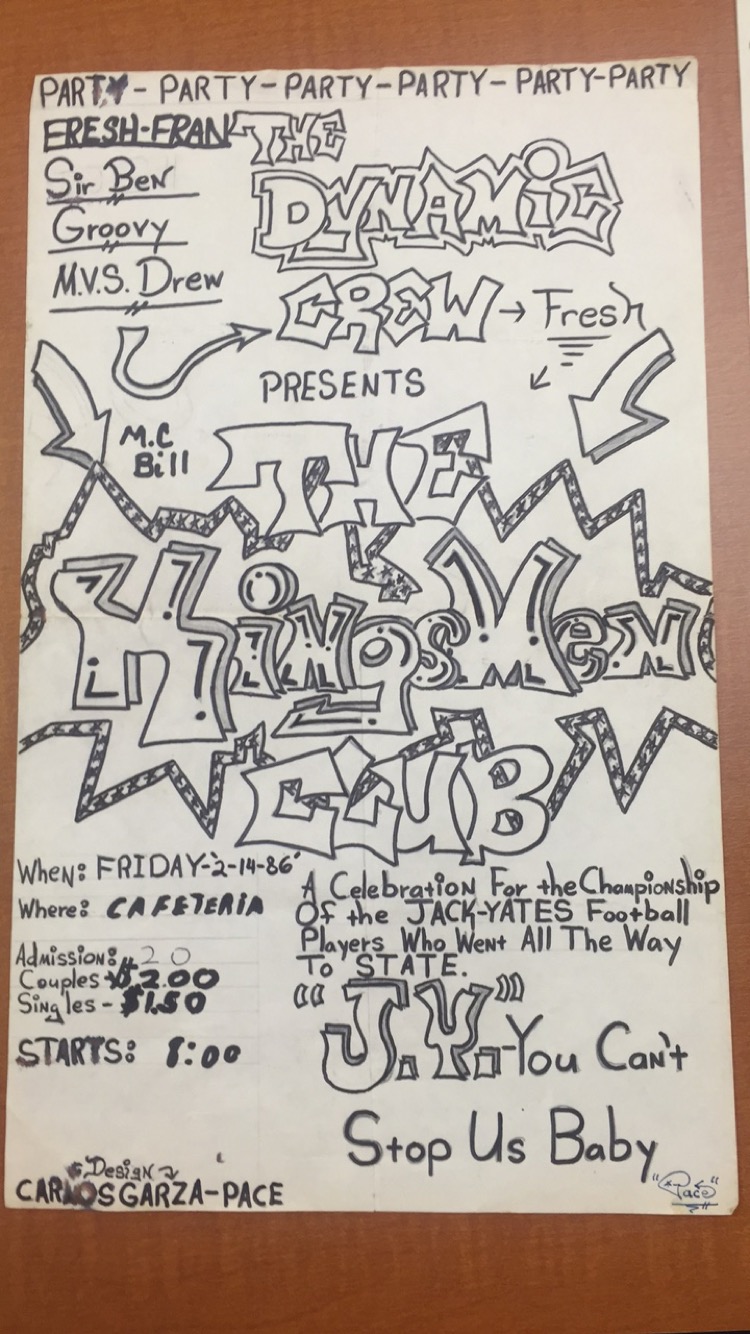 PARTY - PARTY - PARTY - PARTY - PARTY - PARTY
FRESH-FRAN
Sir Ben
Groovy
M.V.S. Drew
THE
DYNAMiC
CREW → Fresh
PRESENTS
M.C
Bill
THE
KingsMen
CLUB
When: FRIDAY-2-14-86
Where: CAFETERIA
Admission: 20
Couples $2.00
Singles - $1.50
STARTS: 8:00
A Celebration For the Championship
Of the JACK-YATES Football
Players Who Went All The Way
To STATE.
"J.Y."-You Can't
Stop Us Baby
Design
CARLOS GARZA-PACE
"Pace"